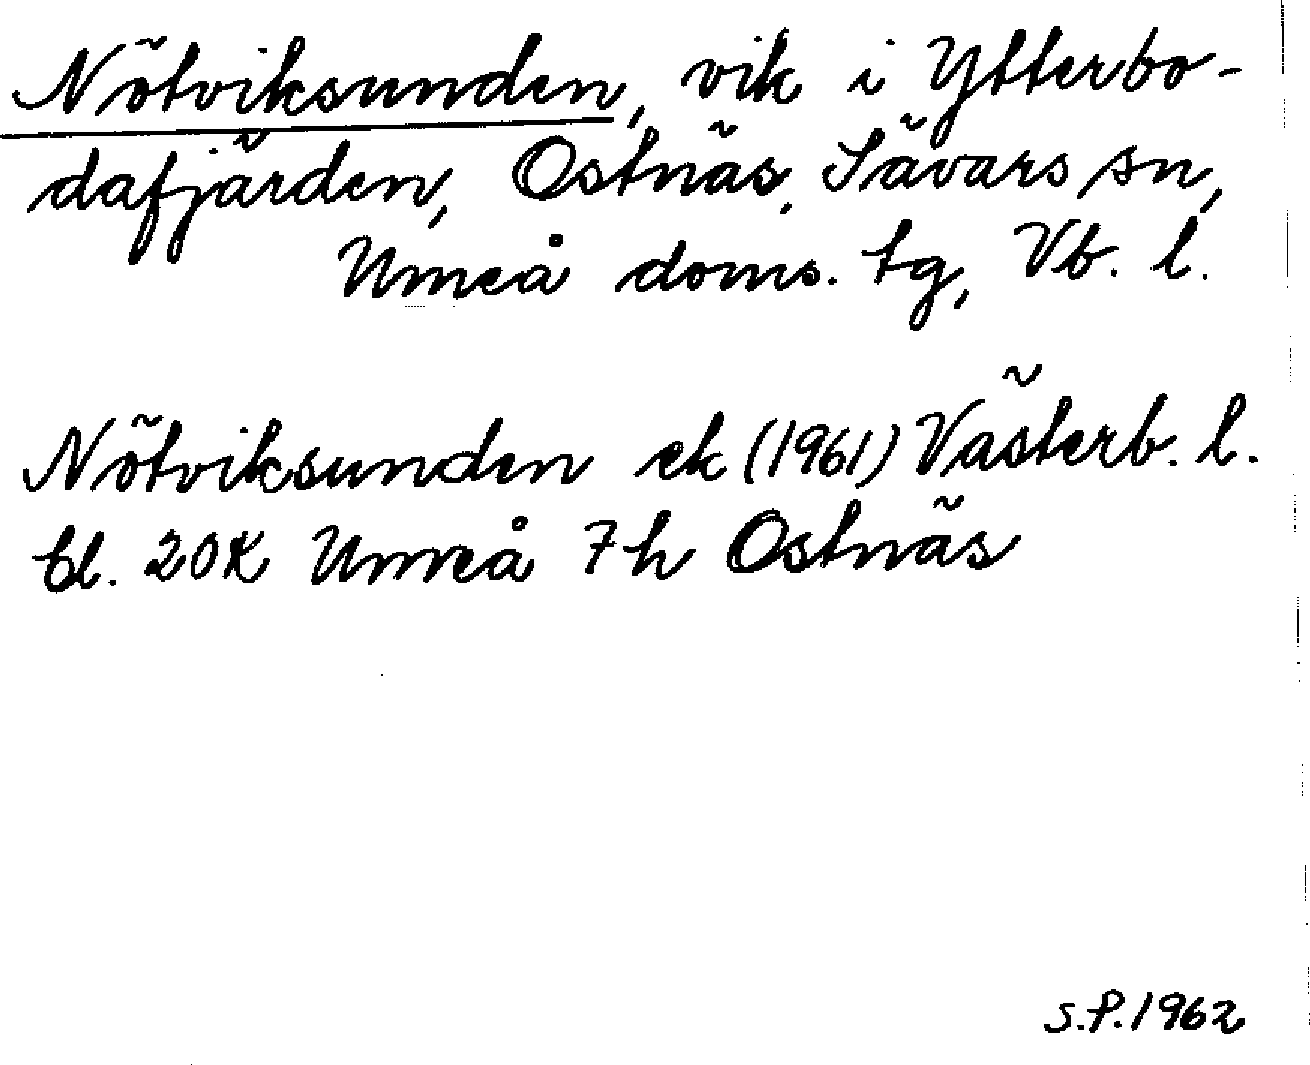 Nötviksunden, vik i Ytterbo-
dafjärden, Ostnäs, Sävars sn,
Umeå doms. tg, Vb. l.
Nötviksunden ek (1961) Västerb. l.
bl. 20K Umeå 7h Ostnäs
S.P. 1962